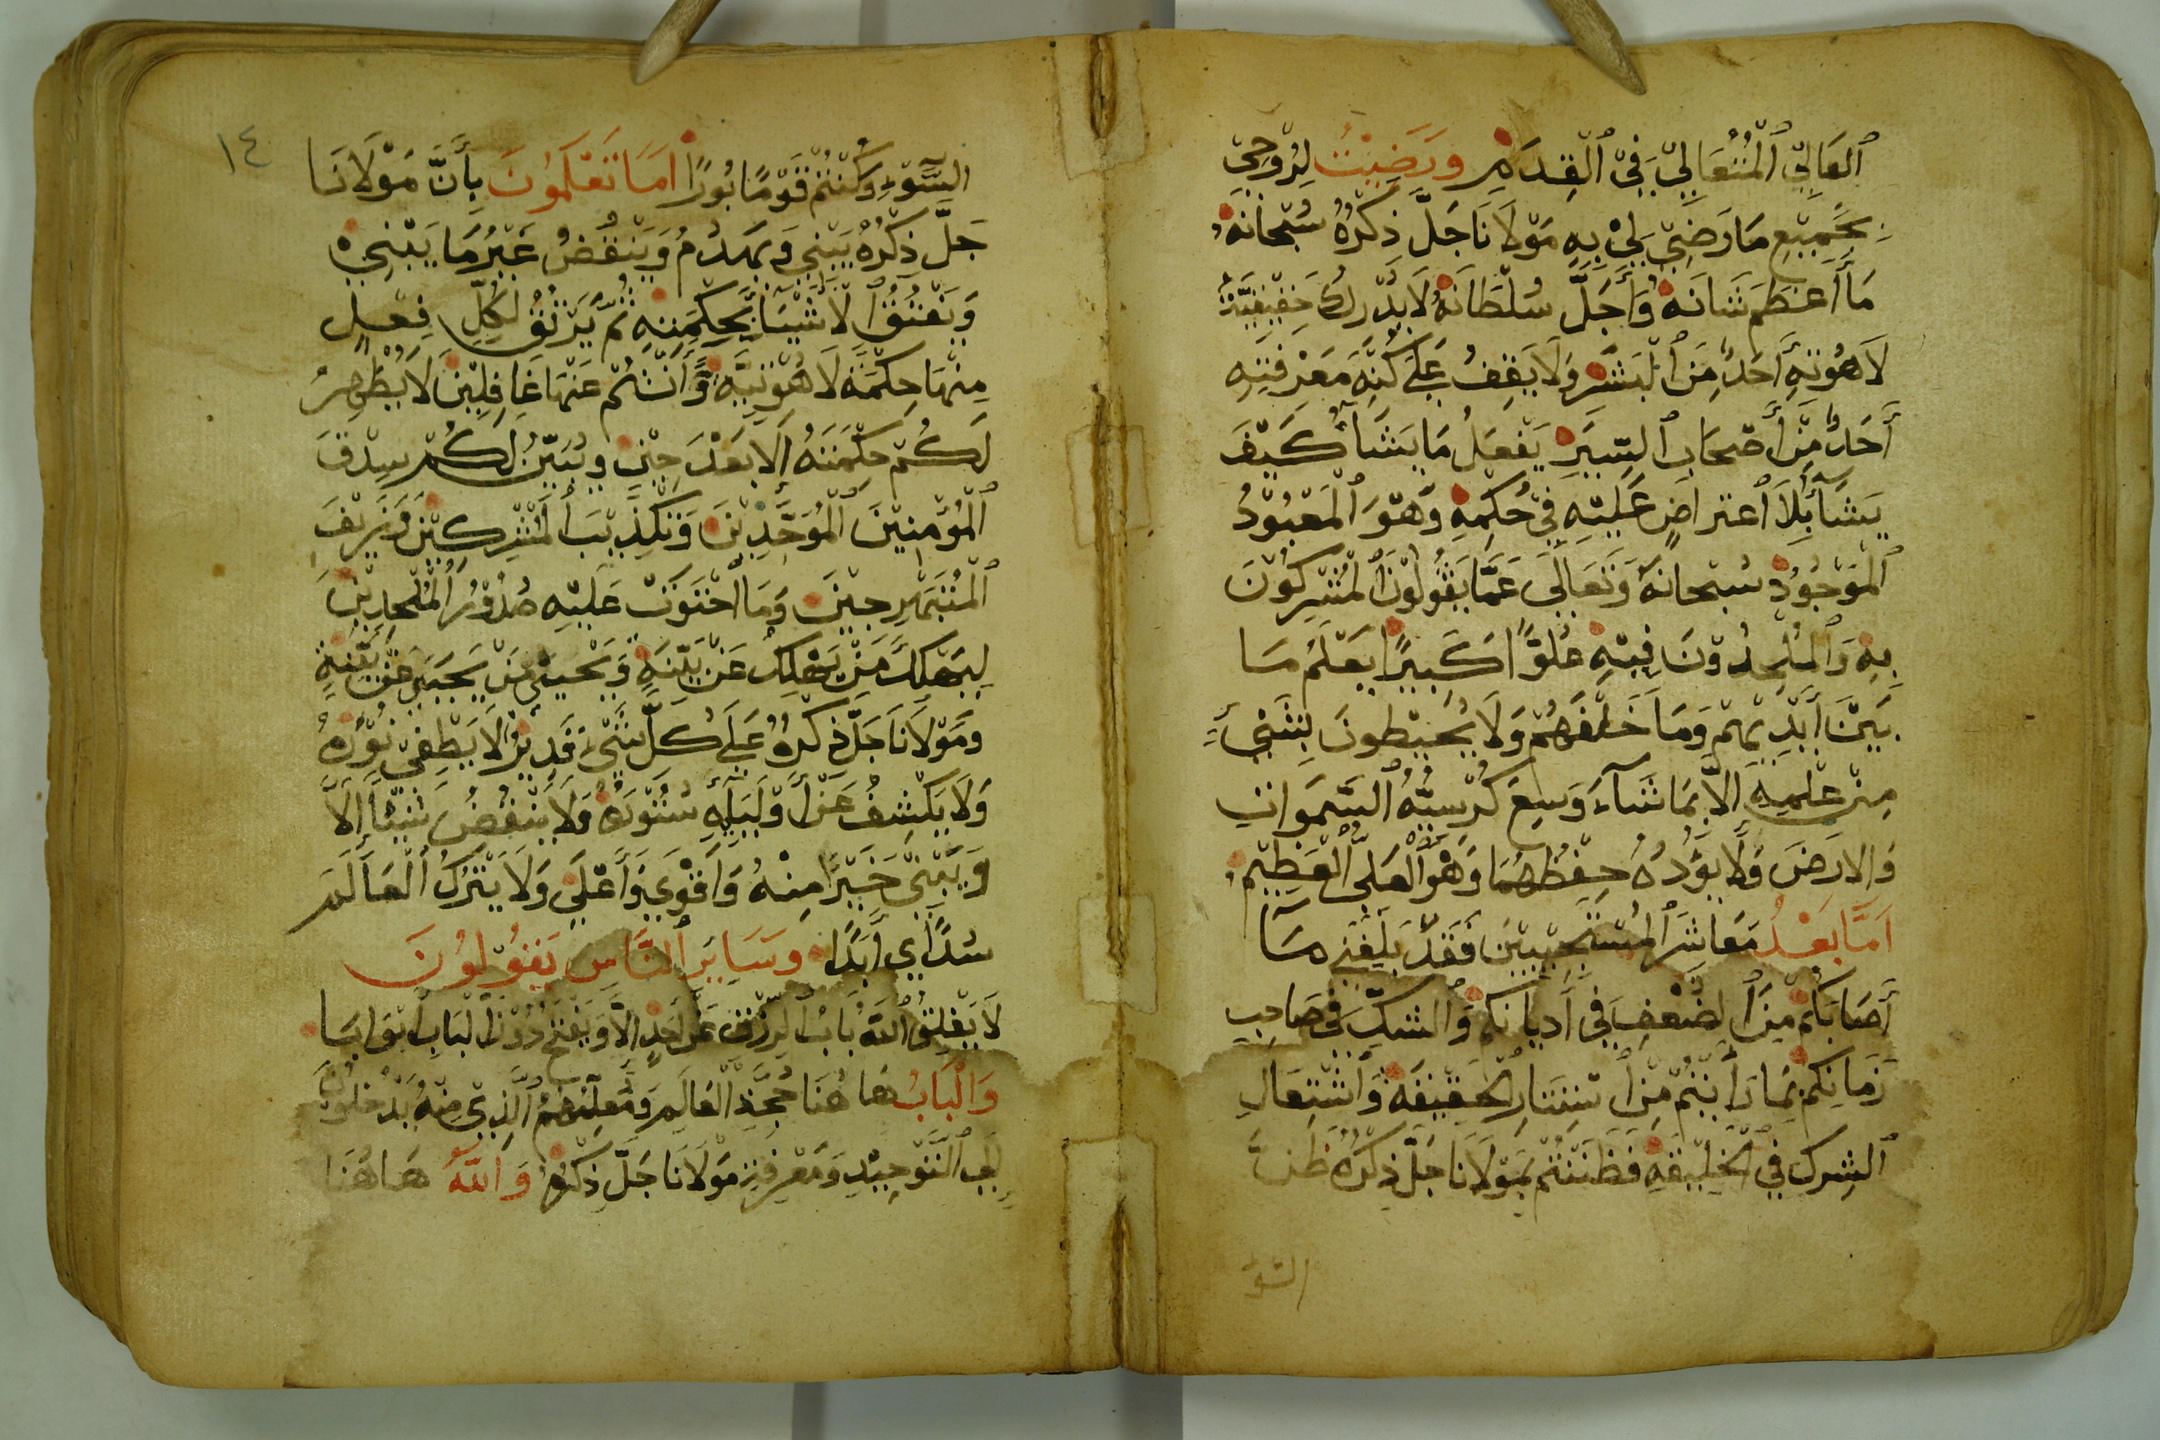 ٱلعَالِيّ ٱلْمُتُعَالِيّ فِيّ ٱلْقِدَمِ وَرَضِيْتُ لِرُوحِيّ
بِجَمِيْعِ مَا رَضِيَ لِيْ بِهِ مَوْلَانَا جَلَّ ذِكْرُهُ سُبْحَانَهُ
مَا أَعْظَمَ شَانَهُ وَأَجَلَّ سُلْطَانَهُ لَا يُدْرِكُ حَقِيْقِيَّةُ
لَاهُوْتِهِ أَحَدٌ مِّنَ ٱلْبَشَرِ وَلَا يَقِفُ عَلَى كُنْهِ مَعْرِفَتِهِ
أَحَدٌ مِّنْ أَصْحَابِ ٱلسِّيَرِ يَفْعَلُ مَا يَشَأُ كَيْفَ
يَشَآءُ بِلَا ٱعْتِرَاضٍ عَلَيْهِ فِيْ حُكْمِهِ وَهْوَ ٱلْمَعْبُوْدُ
ٱلْمَوْجُوْدُ سُبْحَانَهُ وَتَعَالَى عَمَّا يَقُوْلُوْنَ ٱلْمُشْرِكُوْنَ
بِهِ وَٱلْمُلْحِدُوْنَ فِيْهِ عُلُوًّا كَبِيْرًا يَعْلَمُ مَا
بَيْنَ أَيْدِيْهِمْ وَمَا خَلْفَهُمْ وَلَا يُحِيْطُونَ بِشَيْءٍ
مِنْ عِلْمِهِ إِلَّا بِمَا شَآءَ وَسِعَ كُرْسِيُّهُ ٱلسَّمَوَاتِ
وَالارَضَ وَلَا يَؤُدُهُ حِفْظُهُمَا وَهْوَ ٱلْعَلِيُّ ٱلْعَظِيْمُ
اَمَّا بَعْدُ مَعَاشِرَ ٱلْمُسْتَجِيْبِيْنَ فَقَدْ بَلَغَنِي مَآ
أَصَابَكُمْ مِنَ ٱلضُعْفِ فِي أَدْيَانِكُمْ وَٱلشَّكِّ فِي صَاحِبِ
زَمَانِكُمْ بِمَا رَأَيْتُمْ مِنَ ٱسْتِتَارِ ٱلْحَقِيْقَةِ وَٱشْتِعَالِ
ٱلشِرْكِ فِي ٱلْخَلِيْقَةِ فَظَنَنْتُمْ بِمَوْلَانَا جَلَّ ذِكْرُهُ ظَنَّ
السَّوْءِ
١٤
السَّوْءِ وَكُنْتُمْ قَوْمًا بُورًا اَمَا تَعْلَمُوْنَ بِأَنَّ مَوْلَانَا
جَلَّ ذِكْرُهُ يَبْنِي وَيَهْدِمُ وَيَنْقُضُ غَيْرُ مَا يَبْنِيْ
وَيَفْتُقُ ٱلْأَشْيَا بِحِكْمِتِهِ ثُمَّ يَرْتُقُ لِكُلِّ فِعْلٍ
مِنْهَا حِكْمَةً لَاهُوْتِيَّةً وَأَنْتُمْ عَنْهَا غَافِلِيْنَ لَا يُظْهِرُ
لَكُمْ حِكْمَتَهُ إِلَّا بَعْدَ حِيْنٍ وَيُبَيِّنُ لَكُمْ صِدْقَ
ٱلْمُؤْمِنِيْنَ ٱلْمُوَحِّدِيْنَ وَتَكْذِيْبَ ٱلْمُشْرِكِيْنَ وَزَيْفَ
ٱلْمُتَبَهْرِجِيْنَ وَمَا ٱحْتَوَتْ عَلَيْهِ صُدُوْرُ ٱلْمُلْحِدِيْنَ
لِيَهْلِكَ مَنْ يَهْلِكُ عَنْ بَيِّنَةٍ وَيَحْيَىْ مَنْ يَحْيَى عَنْ بَيِّنَةٍ
وَمَوْلَانَا جَلَّ ذِكْرُهُ عَلَى كُلِّ شَيْءٍ قَدِيْرٌ لَا يَطْفِيْ نُوْرُهُ
وَلَا يَكْشِفُ عَنْ أَوْلِيَآئِهِ سُتُوْرَهُ وَلَا يَنْقُضُ شَيْئًا إِلَّا
وَيَبْنِيْ خَيْرًا مِنْهُ وَاَقْوَي وَأَعْلَي وَلَا يَتْرُكُ ٱلْعَالَمَ
سُدًاي أَبَدًا وَسَايِرُ ٱلنَّاسِ يَقُوْلُوْنَ
لَا يَغْلِقُ ٱللهُ بَابُ ٱلرِّزْقِ عَنْ أَحَدٍ إِلَّا وَيَفْتَحُ دُوْنَ ٱلْبَابِ أَبْوَابًا
وَٱلْبَابُ هَاهُنَا حُجَّةُ ٱلْعَالَمِ وَمُعَلِّمُهُمُ ٱلَّذِيْ مِنْهُ يَدْخُلُوْنَ
إِلَى ٱلتَّوْحِيْدِ وَمَعْرِفَةِ مَوْلَانَا جَلَّ ذِكْرُهُ وَٱللهُ هَاهُنَا